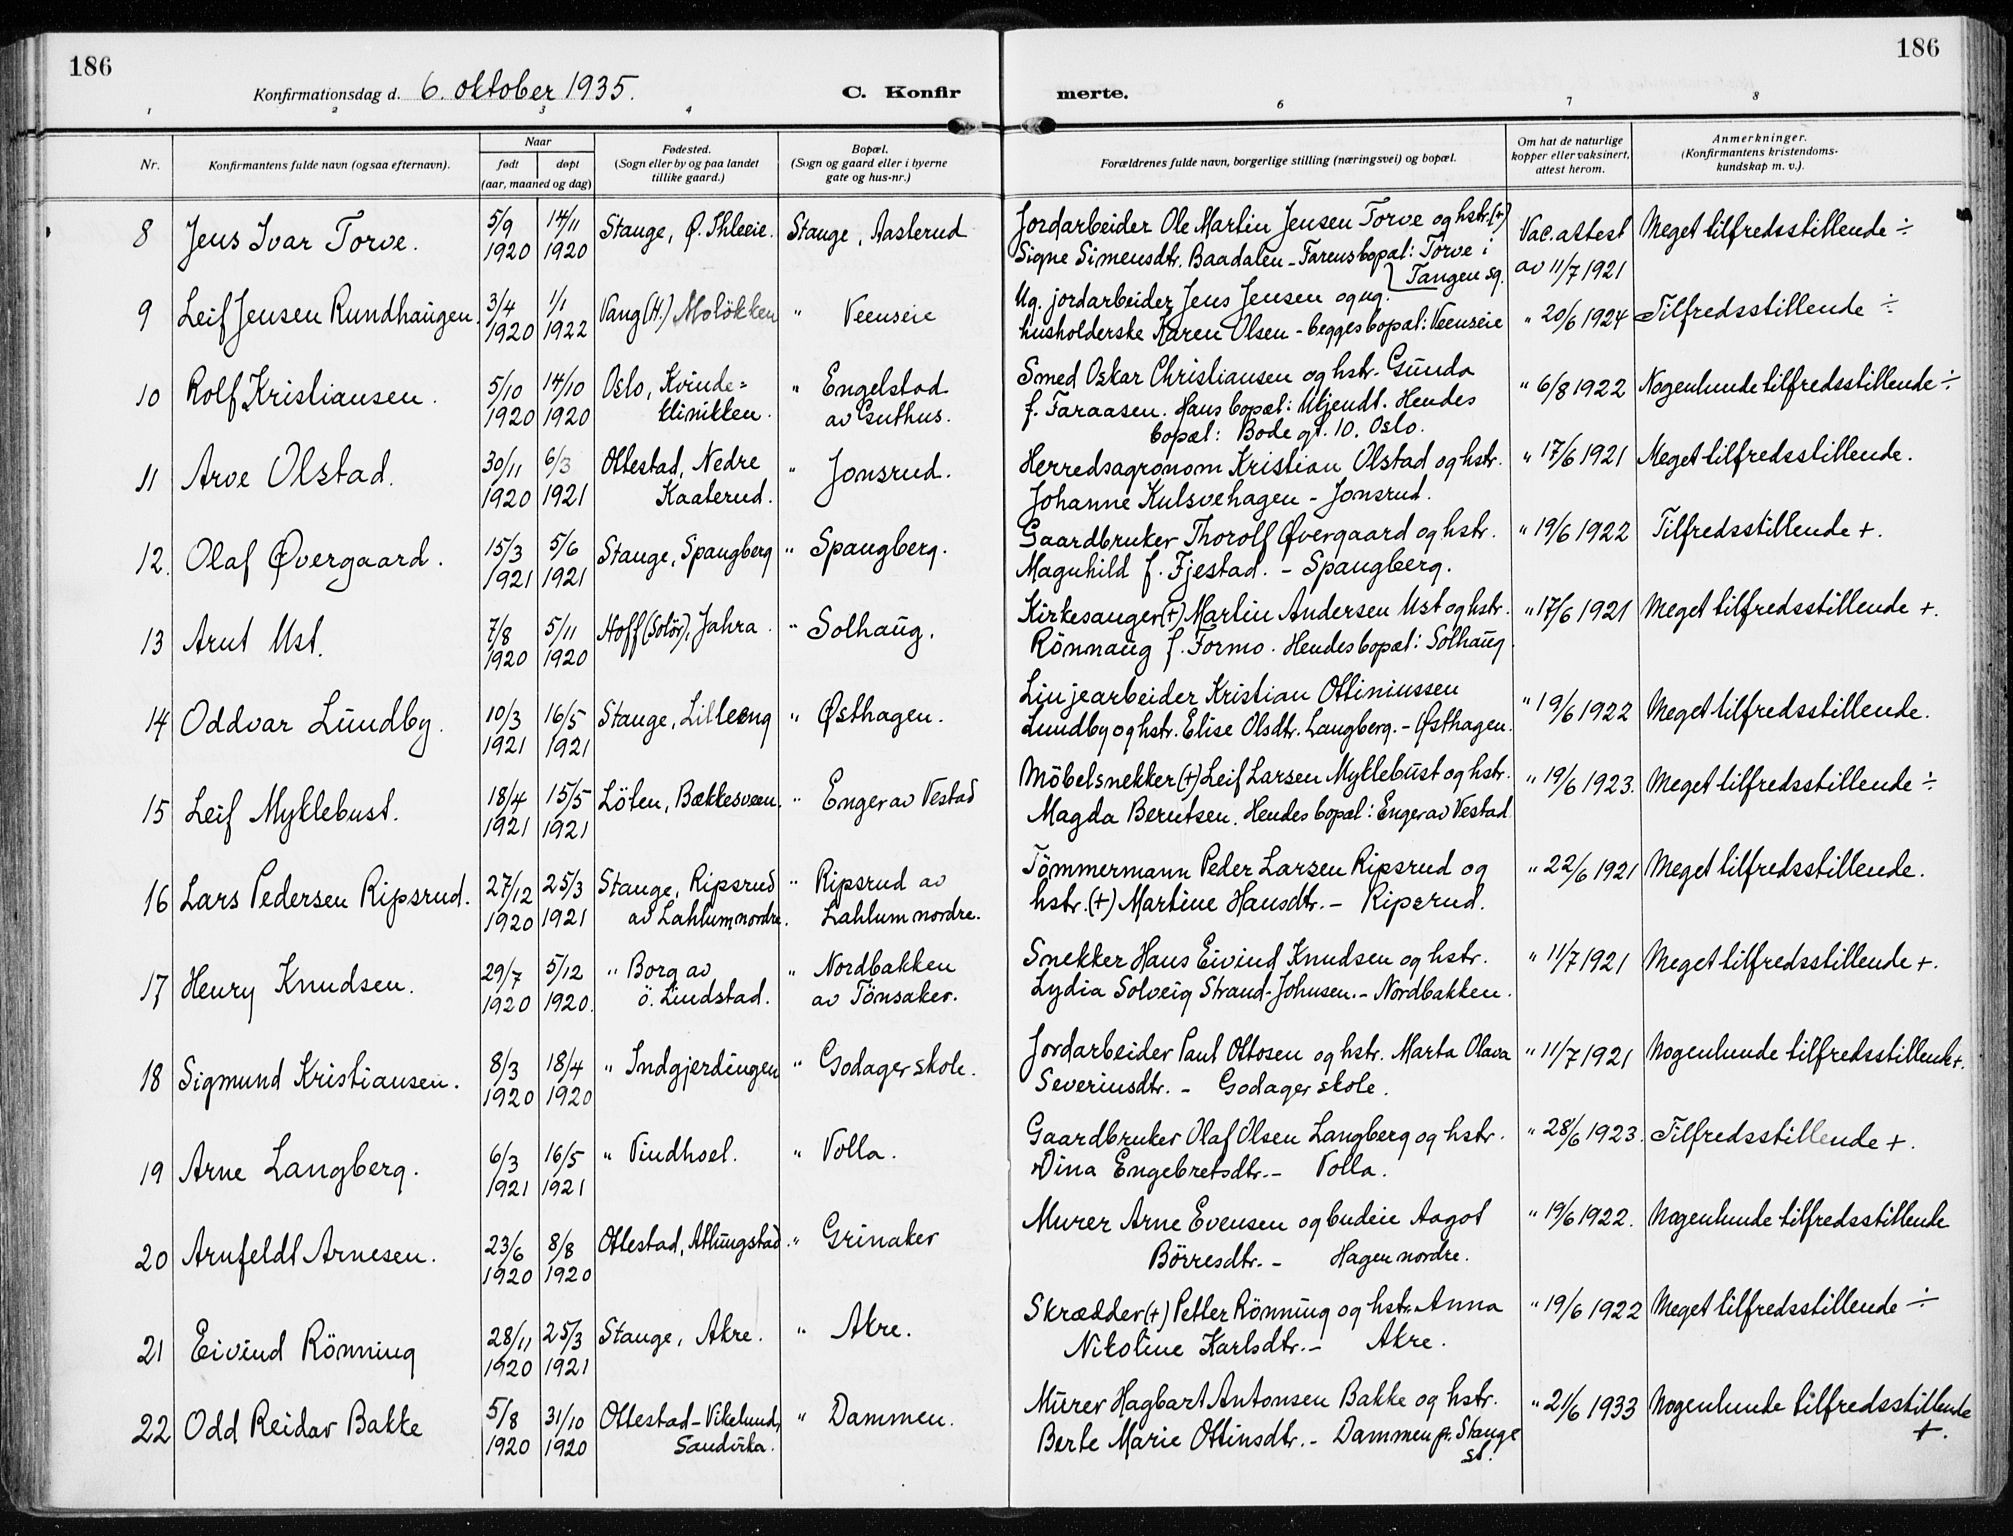 186
186
Konfirmationsdag d. 6. oktober 1935.
C. Konfirmerte.
1 2 3 4 6 7 8
Nr.
Konfirmantens fulde navn (ogsaa efternavn).
Naar
født
døpt
(aar, maaned og dag)
Fødested.
(Sogn eller by og paa landet
tillike gaard.)
Bopæl.
(Sogn og gaard eller i byerne
gate og hus-nr.)
Forældrenes fulde navn, borgerlige stilling (næringsvei) og bopæl.
Om hat de naturlige
kopper eller vaksinert,
attest herom.
Anmerkninger.
(Konfirmantens kristendoms-
kundskap m. v.).
8 Jens Ivar Torve. 5/9 14/11 Stange, Ø. Thleeie. Stange, Aasterud Jordarbeider Ole Martin Jensen Torve og hstr.(+) Vac.attest Meget tilfredsstillende ÷
1920 1920 Signe Simensdtr. Baadalen - Farens bopæl: Torve i av 11/7 1921
Tangen sg.
9 Leif Jensen Rundhaugen. 3/4 1/1 Vang (H.) Moløkken " Veenseie Ug. jordarbeider Jens Jensen og ug. " 20/6 1924 Tilfredsstillende ÷
1920 1922 husholderske Karen Olsen - begges bopæl: Veenseie
10 Rolf Kristiansen. 5/10 14/10 Oslo, Kvinde= " Engelstad Smed Oskar Christiansen og hstr. Gunda " 6/8 1922 Nogenlunde tilfredsstillende ÷
1920 1920 klinikken. av Guthus. f. Faraasen. Hans bopæl: Ukjendt. Hendes
bopæl: Bode gt. 10. Oslo.
11 Arve Olstad. 30/11 6/3 Ottestad, Nedre " Jonsrud. Herredsagronom Kristian Olstad og hstr. " 17/6 1921 Meget tilfredsstillende.
1920 1921 Kaaterud. Johanne Kulsvehagen - Jonsrud.
12. Olaf Øvergaard. 15/3 5/6 Stange, Spangberg " Spangberg. Gaardbruker Thorolf Øvergaard og hstr. " 19/6 1922 Tilfredsstillende +.
1921 1921 Magnhild f. Fjestad. - Spangberg.
13 Arnt Ust. 7/8 5/11 Hoff (Solör), Jahra. " Solhaug. Kirkesanger (+) Martin Andersen Ust og hstr. " 17/6 1921 Meget tilfredsstillende +.
1920 1920 Rönnaug f. Formo. Hendes bopæl: Solhaug.
14 Oddvar Lundby. 10/3 16/5 Stange, Lilleeng " Østhagen. Linjearbeider Kristian Ottiniussen " 19/6 1922 Meget tilfredsstillende.
1921 1921 Lundby og hstr. Elise Olsdtr. Langberg. - Østhagen.
15 Leif Myklebust. 18/4 15/5 Löten, Bækkesveen. " Enger av Vestad Möbelsnekker (+) Leif Larsen Myklebust og hstr. " 19/6 1923. Meget tilfredsstillende ÷
1921 1921 Magda Berntsen. Hendes bopæl: Enger av Vestad
16 Lars Pedersen Ripsrud. 27/12 25/3 Stange, Ripsrud " Ripsrud av Tömmermann Peder Larsen Ripsrud og " 22/6 1921 Meget tilfredsstillende.
1920 1921 av Lahlum nordre. Lahlum nordre. hstr. (+) Martine Hansdtr. - Ripsrud.
17 Henry Knudsen. 29/7 5/12 " Borg av " Nordbakken Snekker Hans Eivind Knudsen og hstr. " 11/7 1921 Meget tilfredsstillende +.
1920 1920. ö. Lindstad. av Tönsaker. Lydia Solveig Strand-Johnsen. - Nordbakken.
18 Sigmund Kristiansen. 8/3 18/4 " Indgjerdingen " Godager skole. Jordarbeider Paul Ottosen og hstr. Marta Olava " 11/7 1921 Nogenlunde tilfredsstillende +.
1920 1920 Severinsdtr. - Godager skole.
19 Arne Langberg. 6/3 16/5 " Vindhoel. " Volla. Gaardbruker Olaf Olsen Langberg og hstr. " 28/6 1923. Tilfredsstillende +.
1921 1921 Dina Engebretsdtr. - Volla.
20 Arnfeldt Arnesen. 23/6 8/8 Ottestad, Atlungstad. " Grinaker Murer Arne Evensen og budeie Aagot " 19/6 1922. Nogenlunde tilfredsstillende
1920 1920 Börresdtr. - Hagen nordre.
21 Eivind Rönning 28/11 25/3 Stange, Akre. " Akre. Skrædder (+) Petter Rönning og hstr. Anna " 19/6 1922 Meget tilfredsstillende ÷
1920 1921 Nikoline Karlsdtr. - Akre.
22 Odd Reidar Bakke 5/8 31/10 Ottestad - Vikelund, " Dammen. Murer Hagbart Antonsen Bakke og hstr. " 21/6 1933 Nogenlunde tilfredsstillende
1920 1920 Sandvika. Berte Marie Ottinsdtr. - Dammen pr. Stange +.
st.